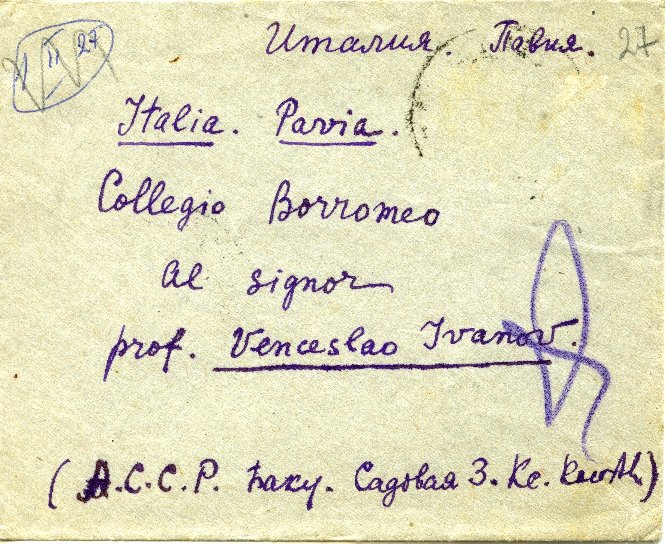 Италия. Павия. 27
27
Italia. Pavia.
Collegio Borromeo
al signor
prof. Venceslao Ivanov.
(А.С.С.Р. Баку. Садовая 3.